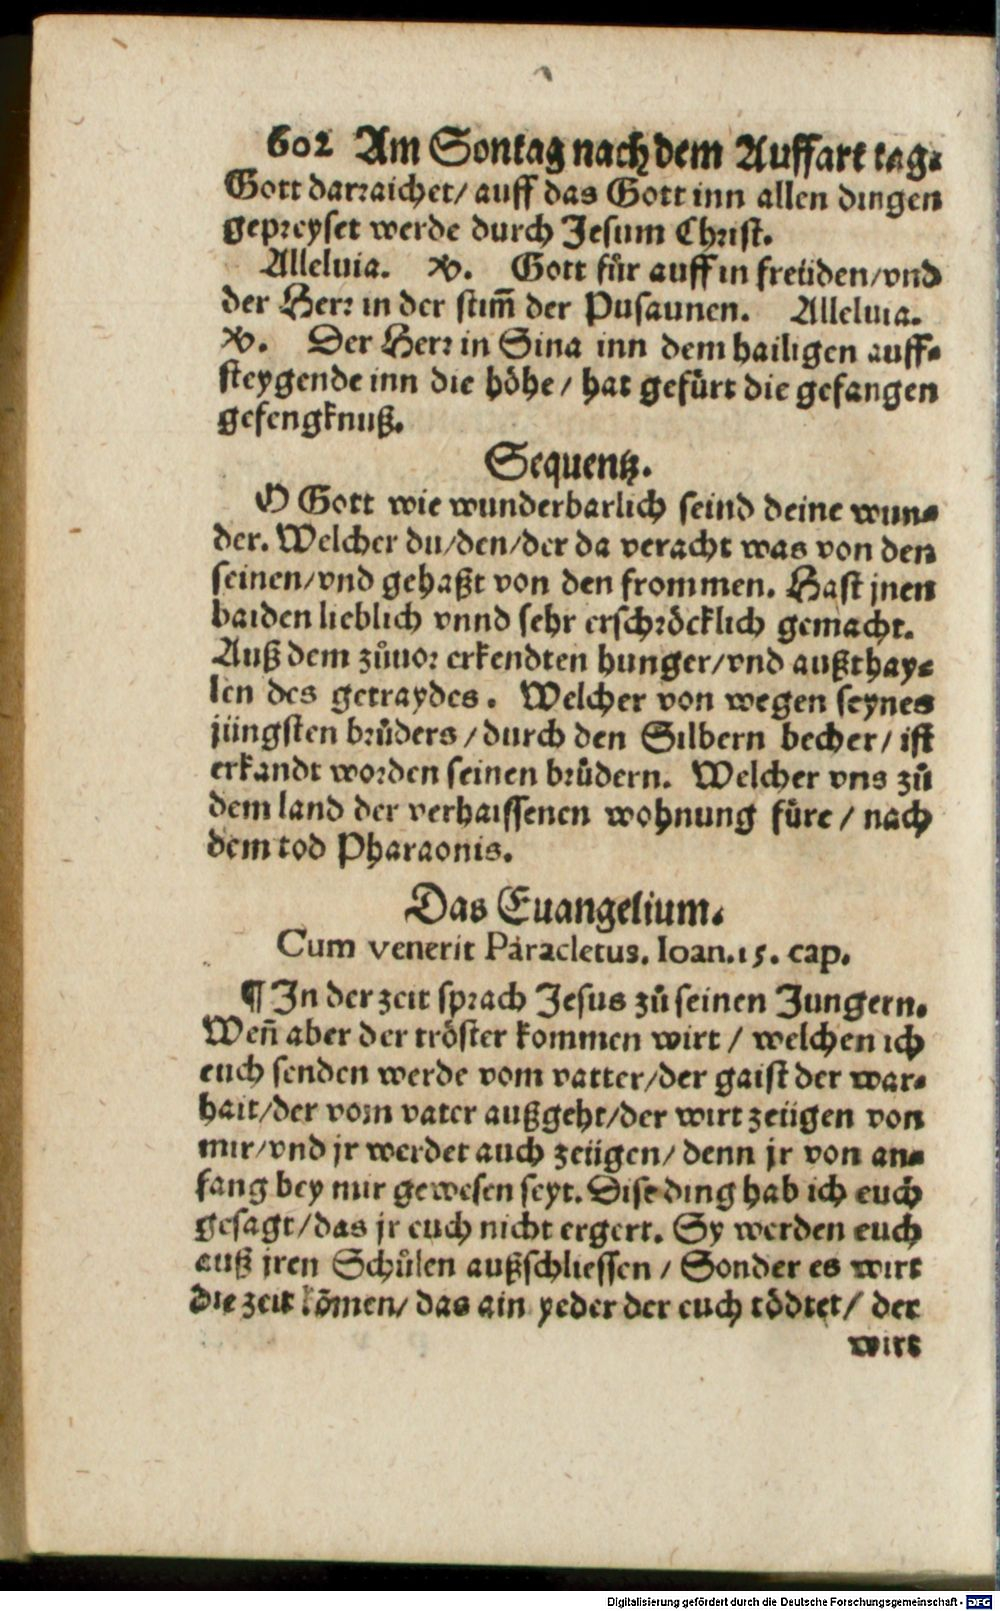 602 Am Sontag nach dem Auffart tag.
Gott darraichet/ auff das Gott inn allen dingen
gepreyset werde durch Jesum Christ.
Alleluia. ℣. Gott für auff in freüden/vnd
der Herr in der stim̃ der Pusaunen. Alleluia.
℣. Der Herr in Sina inn dem hailigen auff-
steygende inn die höhe/ hat gefürt die gefangen
gefengknuß.
Sequentz.
O Gott wie wunderbarlich seind deine wun-
der. Welcher du/den/der da veracht was von den
seinen/vnd gehaßt von den frommen. Hast jnen
baiden lieblich vnnd sehr erschröcklich gemacht.
Auß dem zůuor erkendten hunger/vnd außthay-
len des getraydes. Welcher von wegen seynes
jüngsten brůders/durch den Silbern becher/ ist
erkandt worden seinen brůdern. Welcher vns zů
dem land der verhaissenen wohnung füre/ nach
dem tod Pharaonis.
Das Euangelium.
Cum venerit Paracletus. Ioan.15. cap.
¶ In der zeit sprach Jesus zů seinen Jungern.
Weñ aber der tröster kommen wirt/ welchen ich
euch senden werde vom vatter/der gaist der war-
hait/der vom vater außgeht/der wirt zeügen von
mir/vnd jr werdet auch zeügen/ denn jr von an-
fang bey mir gewesen seyt. Dise ding hab ich euch
gesagt/das jr euch nicht ergert. Sy werden euch
auß jren Schůlen außschliessen/ Sonder es wirt
die zeit kõmen/ das ain yeder der euch tödtet/ der
wirt
Digitalisierung gefördert durch die Deutsche Forschungsgemeinschaft - DFG